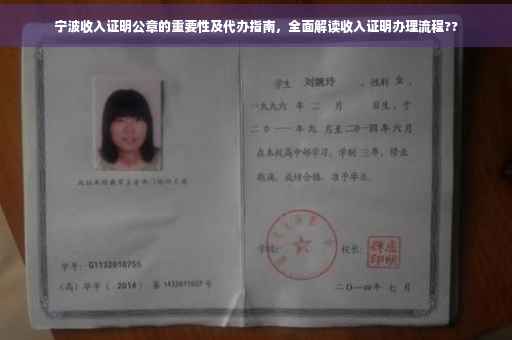 宁波收入证明公章的重要性及代办指南，全面解读收入证明办理流程??
学生 刘婉玲 ，性别 女 ，
一九九六 年 二 月 日生，于
二〇一一 年 九 月至 二〇一四 年 六 月
在本校高中部学习，学制 三 年，修业
期满，成绩合格，准予毕业。
学号： G1132010755
（高）毕字（ 2014 ）第 1432011027 号
学校：
校长：
二〇一四年 七 月